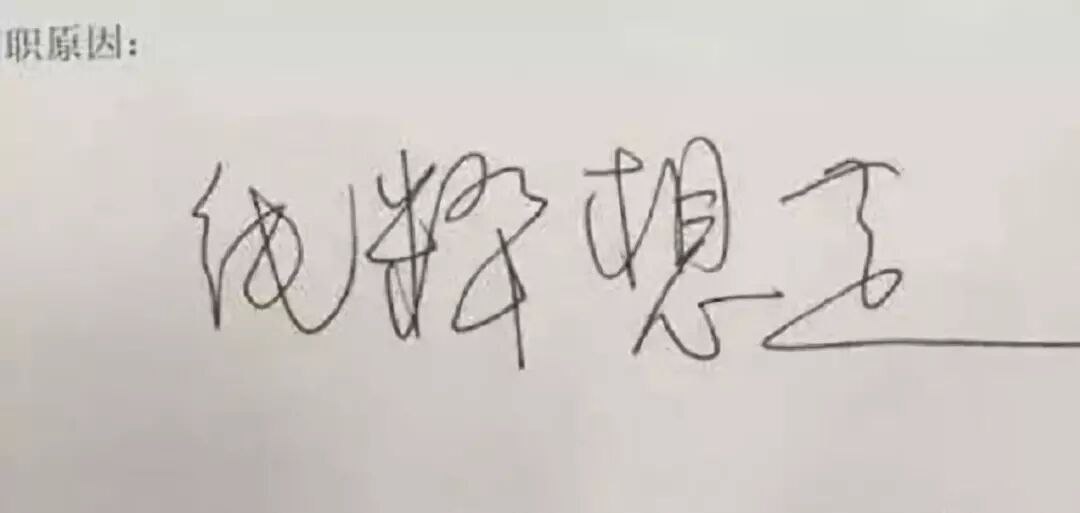 职原因：
纯粹想